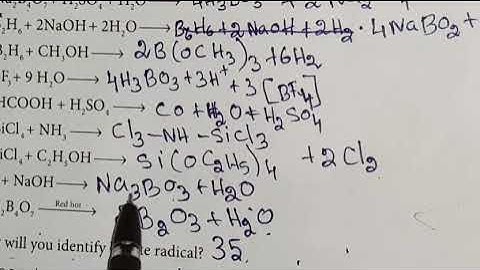 B₄O₇ + H₂SO₄ + H₂O ⟶
₂H₆ + 2NaOH + 2H₂O ⟶ B₂H₆ + 2 NaOH + 2H₂ · 4NaBO₂ +
B₂H₆ + CH₃OH ⟶ 2B(OCH₃)₃ + 6H₂
F₃ + 9 H₂O ⟶ 4H₃BO₃ + 3H⁺ + 3[BF₄]
HCOOH + H₂SO₄ ⟶ CO + H₂O + H₂SO₄
SiCl₄ + NH₃ ⟶ Cl₃–NH–SiCl₃
SiCl₄ + C₂H₅OH ⟶ Si(OC₂H₅)₄ + 2Cl₂
+ NaOH ⟶ Na₃BO₃ + H₂O
₂B₄O₇ Red hot ⟶ B₂O₃ + H₂O
will you identify radical? 35.